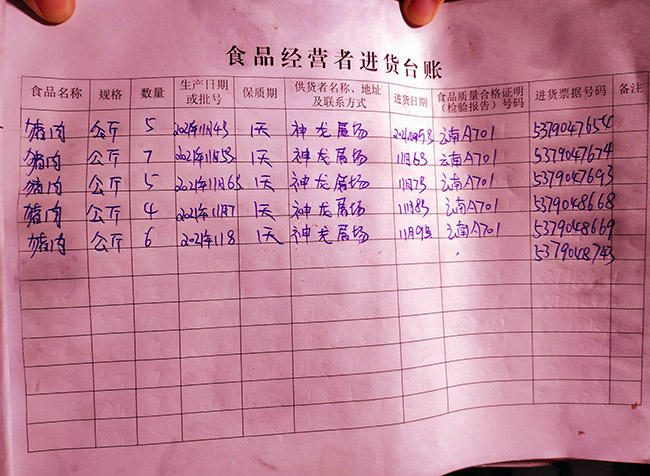 食品经营者进货台账
食品名称 规格 数量 生产日期或批号 保质期 供货者名称、地址及联系方式 进货日期 食品质量合格证明(检验报告)号码 进货票据号码 备注
猪肉 公斤 5 2021年11月4号 1天 神龙屠场 云南A701 5379047654
猪肉 公斤 7 2021年11月5号 1天 神龙屠场 11月6号 云南A701 5379047674
猪肉 公斤 5 2021年11月6号 1天 神龙屠场 11月7号 云南A701 5379047693
猪肉 公斤 4 2021年11月7 1天 神龙屠场 11月8号 云南A701 5379048668
猪肉 公斤 6 2021年118 1天 神龙屠场 11月9号 云南A701 5379048669
5379048743